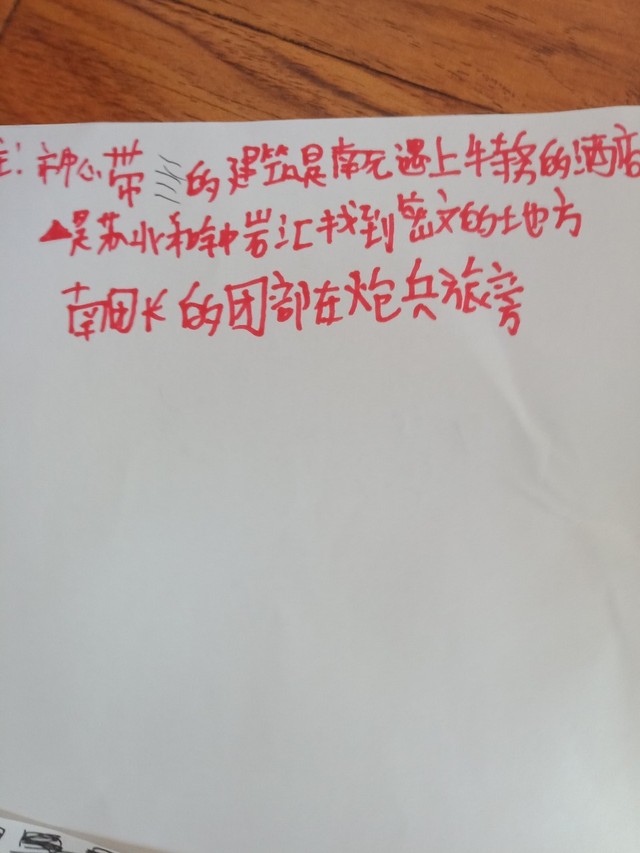 注：中心带的建筑是南无遇上特务的酒店
▲是苏北和钟岩汇找到密文的地方
南团长的团部在炮兵旅旁